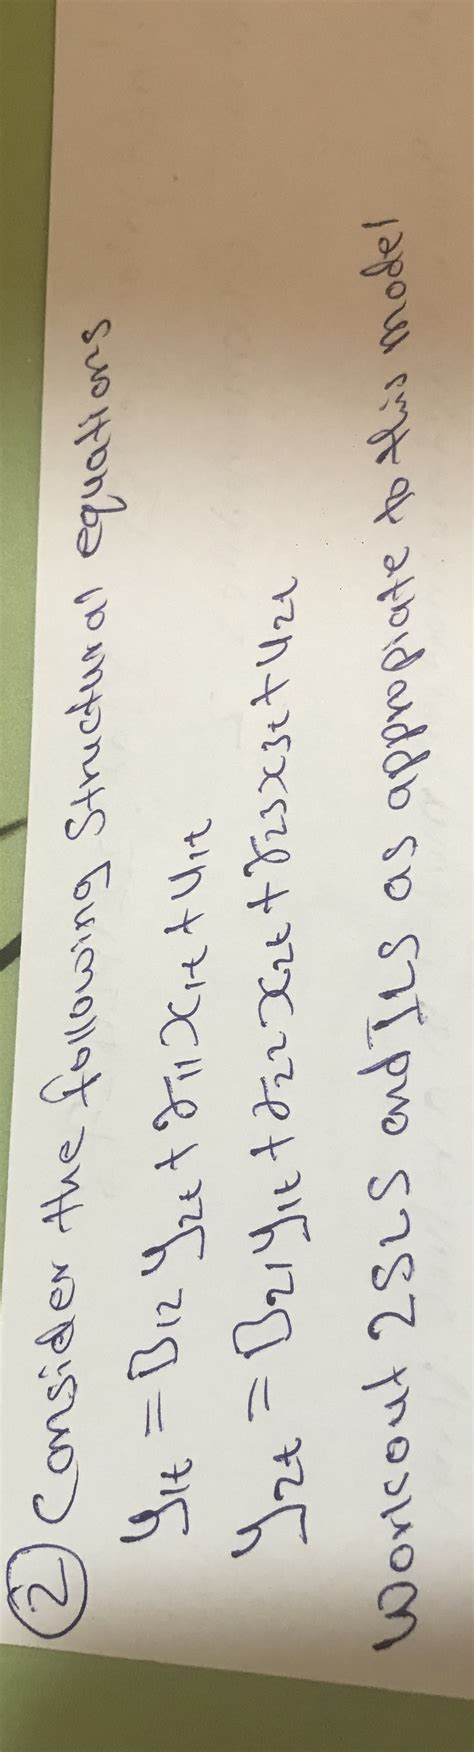 ② Consider the following structural equations
y1t = B12 y2t + γ11 x1t + u1t
y2t = B21 y1t + γ22 x2t + γ23 x3t + u2t
Workout 2SLS and ILS as appropiate to this model